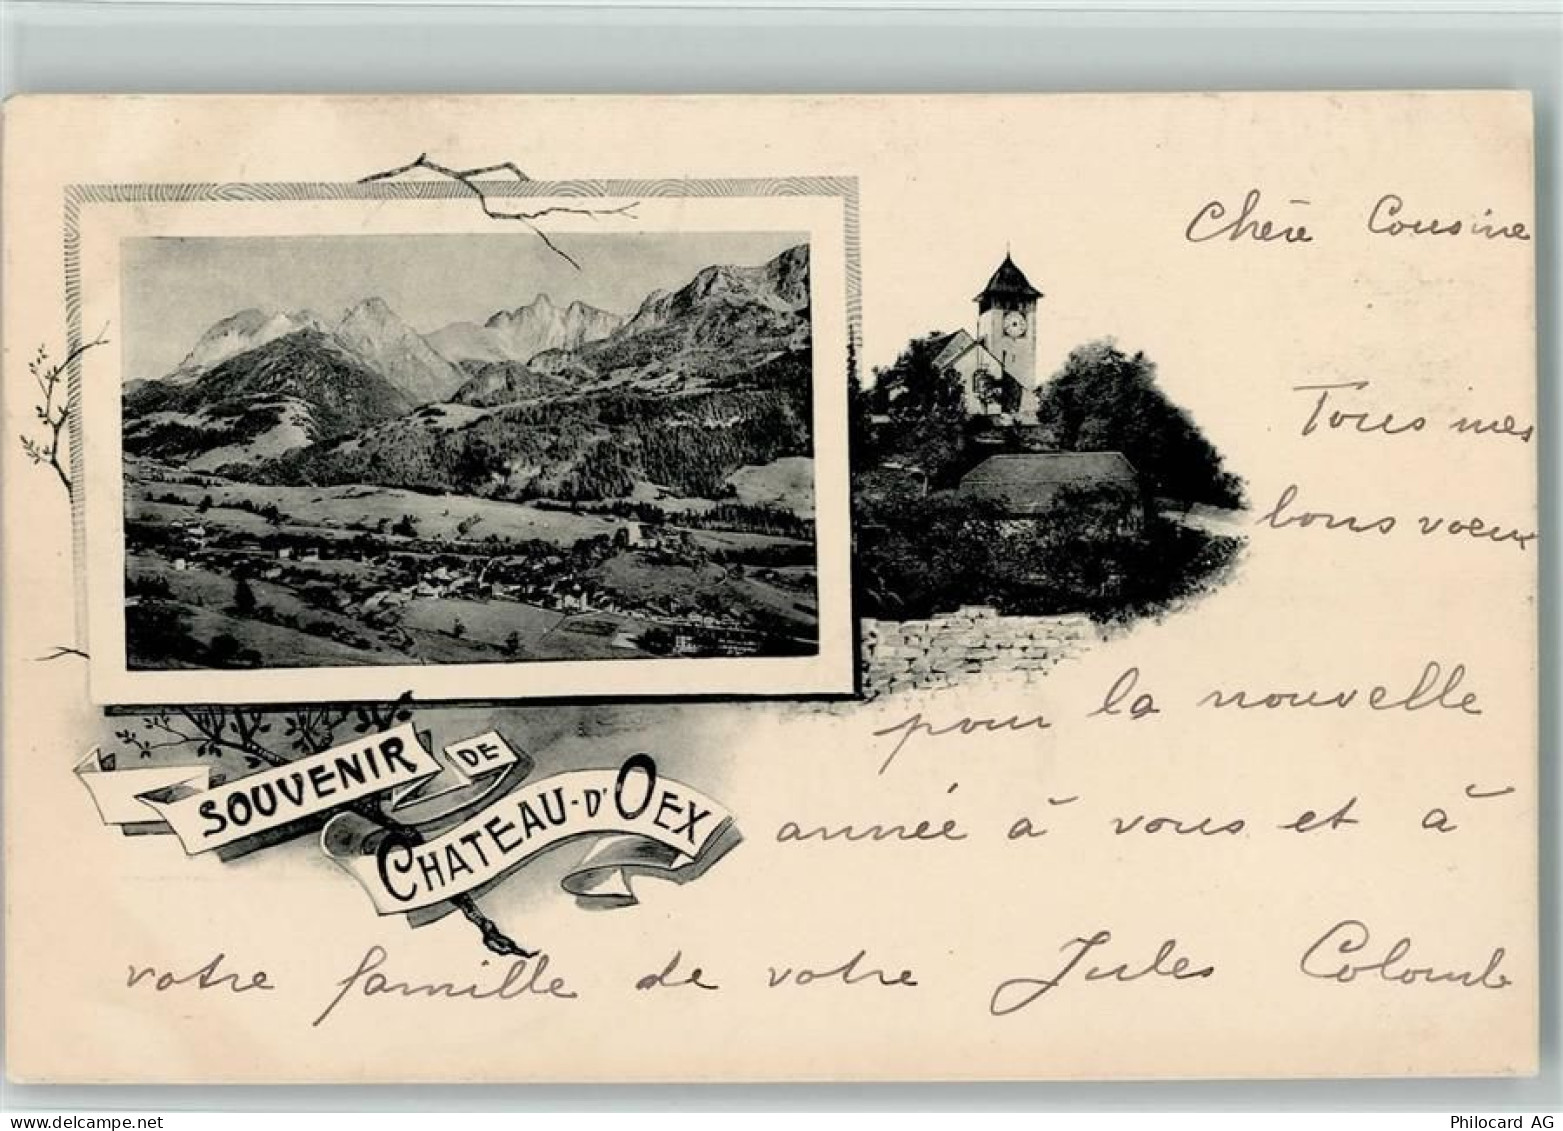 Chère Cousine
Tous mes
bons voeux
pour la nouvelle
année à vous et à
votre famille de votre Jules Colomb
SOUVENIR DE
CHATEAU-D'OEX
www.delcampe.net
Philocard AG